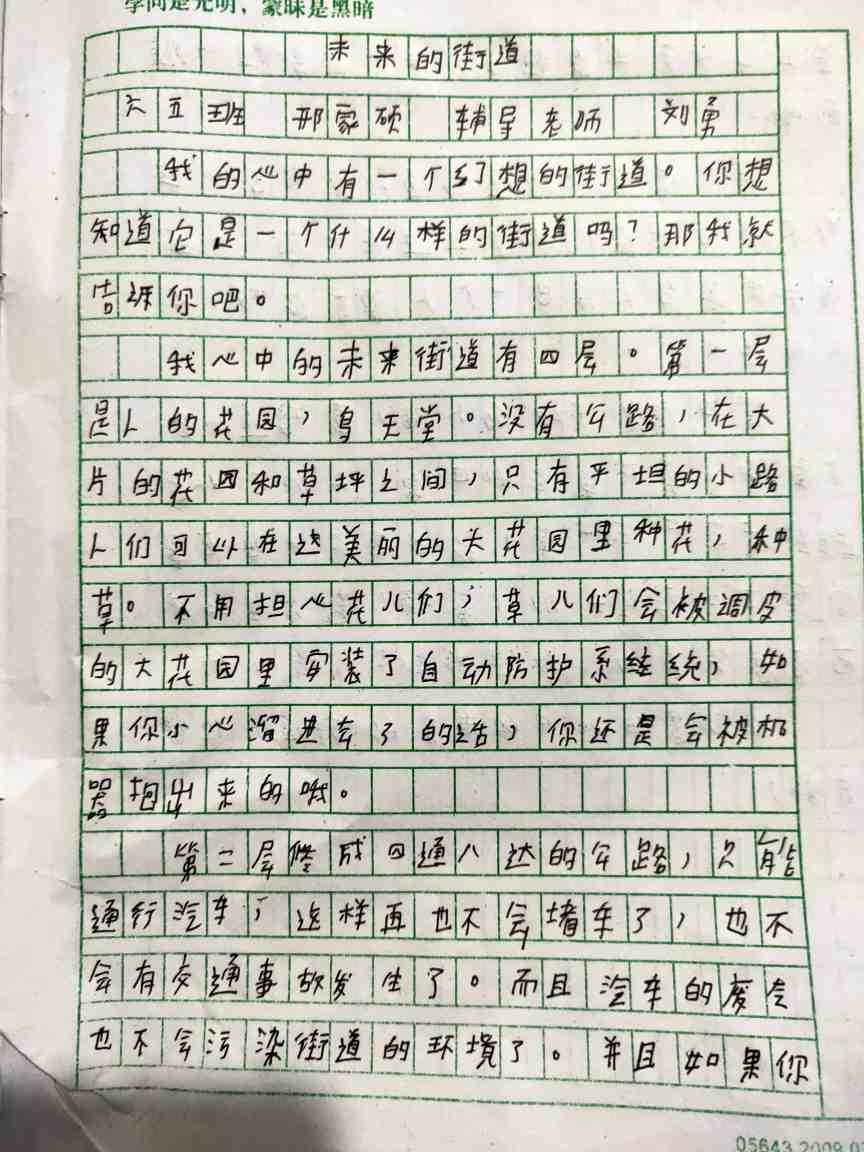 学问是光明，蒙昧是黑暗
未来的街道
六五班 邢家硕 辅导老师 刘勇
我的心中有一个幻想的街道。你想
知道它是一个什么样的街道吗？那我就
告诉你吧。
我心中的未来街道有四层。第一层
是人的花园，鸟天堂。没有公路，在大
片的花园和草坪之间，只有平坦的小路
人们可以在这美丽的大花园里种花，种
草。不用担心花儿们，草儿们会被调皮
的大花园里安装了自动防护系统统，如
果你小心溜进去了的话，你还是会被机
器抱出来的哦。
第二层修成四通八达的公路，只能
通行汽车，这样再也不会堵车了，也不
会有交通事故发生了。而且汽车的废气
也不会污染街道的环境了。并且如果你
05643 2009.0